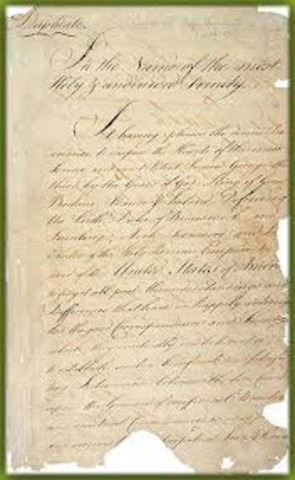 Duplicate.
In the Name of the most
Holy & undivided Trinity.
It having pleased the divine Pro
vidence to dispose the Hearts of the most
Serene and most Potent Prince George the
third, by the Grace of God, King of Great
Britain, France & Ireland, Defender of
the Faith, Duke of Brunswick and
Lunebourg, Arch Treasurer and
Elector of the Holy Roman Empire
and of the United States of America
to forget all past Misunderstandings and
Differences that have unhappily
the good Correspondence and
which they mutually wish to
establish such a beneficial and
Intercourse between the two
upon the Ground of reciprocal
and mutual Convenience as may
and secure to both perpetual Peace &